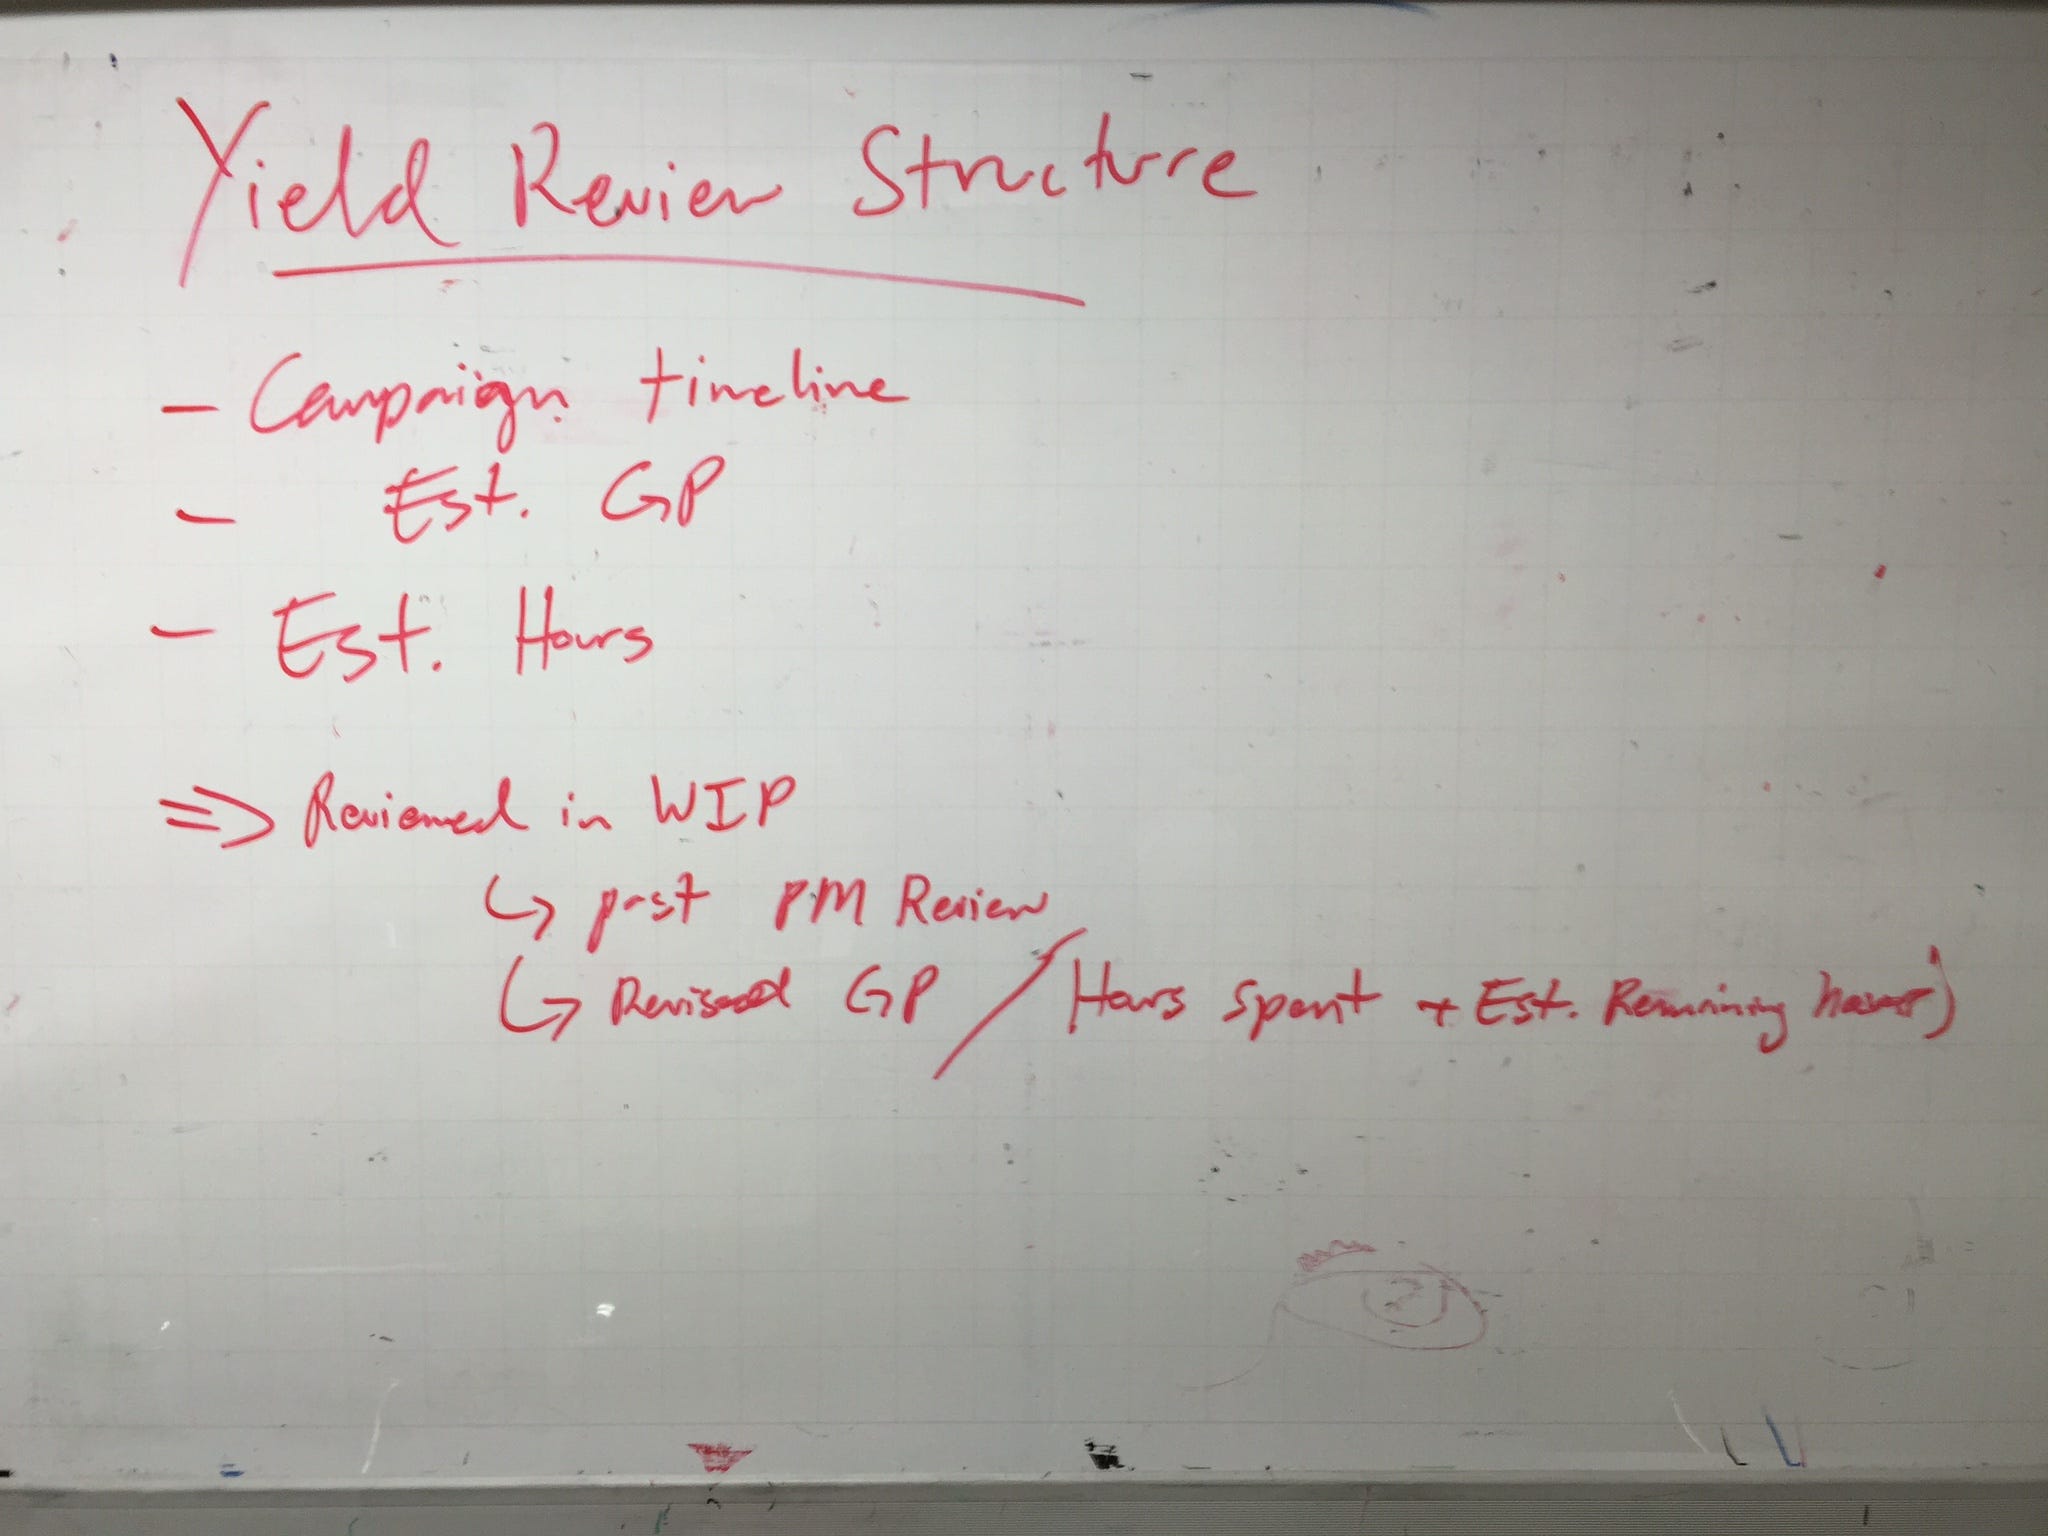 Yield Review Structure
- Campaign timeline
- Est. GP
- Est. Hours
=> Reviewed in WIP
↳ past PM Review
↳ Revised GP / Hours spent + Est. Remaining hours)